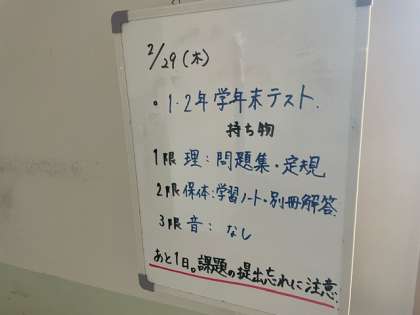 2/29(木)
・1・2年学年末テスト.
持ち物
1限 理:問題集・定規
2限 保体:学習ノート・別冊解答
3限 音: なし
あと1日。課題の提出忘れに注意.